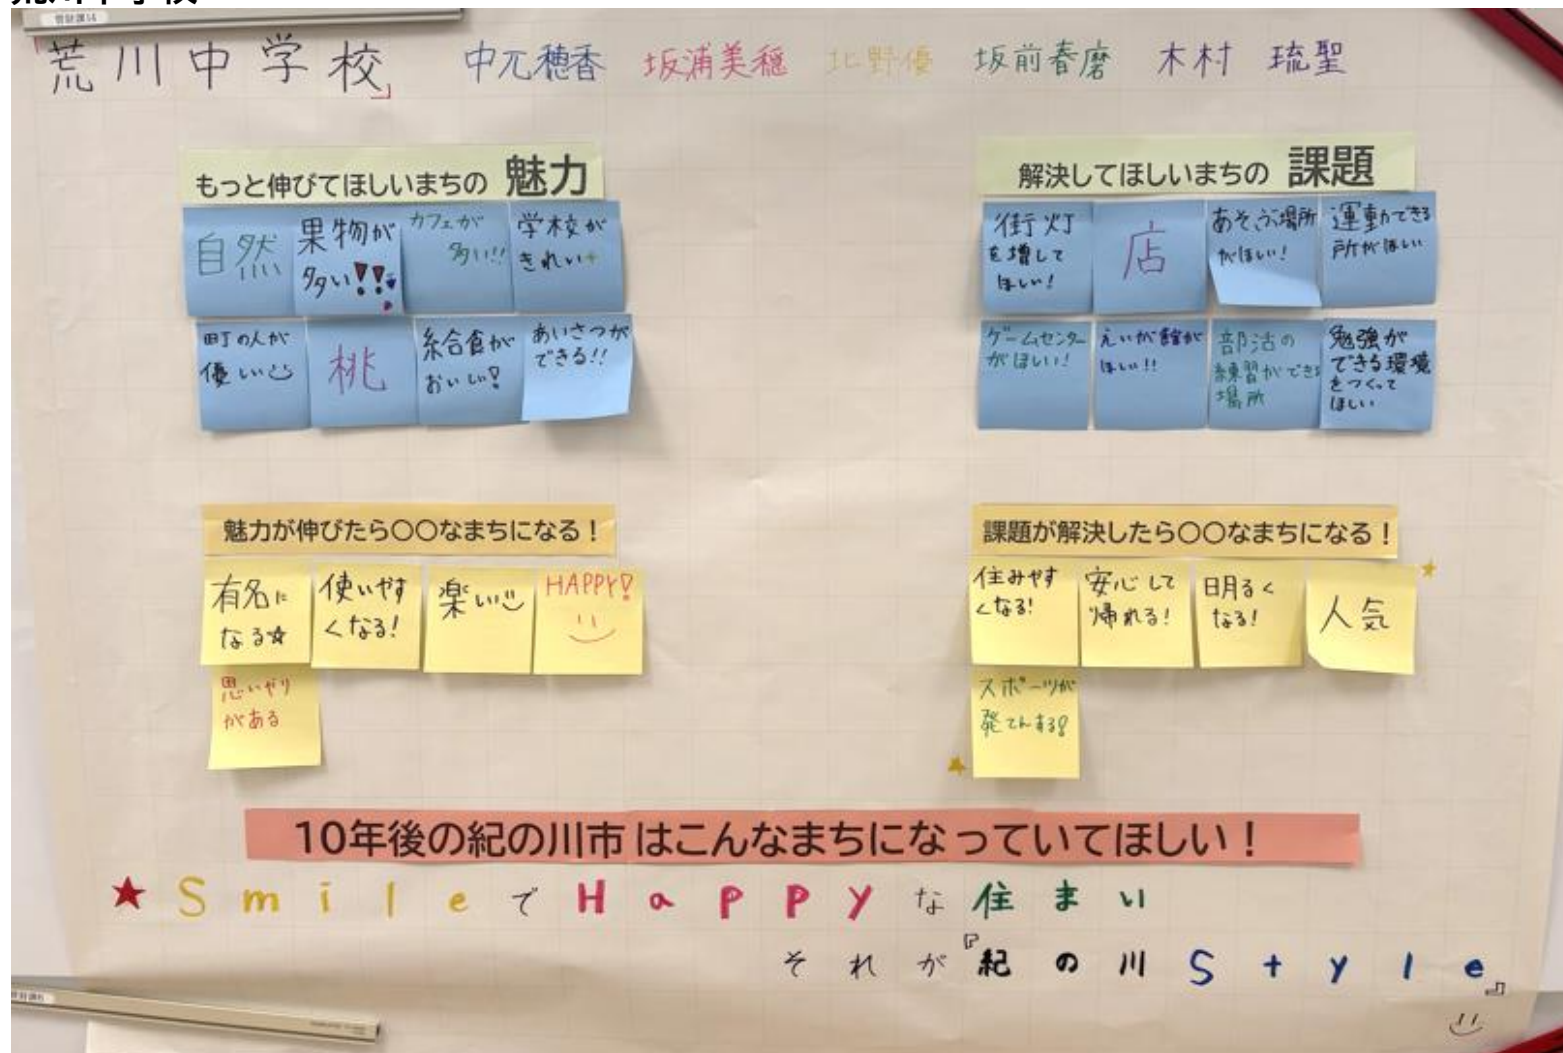 「荒川中学校」 中元穂香 坂浦美穏 北野優 坂前春磨 木村 琉聖
もっと伸びてほしいまちの 魅力
自然
果物が
多い!!
カフェが
多い!!
学校が
きれい
町の人が
優しい
桃
給食が
おいしい!
あいさつが
できる!!
解決してほしいまちの 課題
街灯
を増して
ほしい!
店
あそぶ場所
がほしい!
運動できる
所がほしい
ゲームセンター
がほしい!
えいが館が
ほしい!!
部活の
練習ができる
場所
勉強が
できる環境
をつくって
ほしい
魅力が伸びたら〇〇なまちになる!
有名に
なる☆
使いやす
くなる!
楽しい
HAPPY!
思いやり
がある
課題が解決したら〇〇なまちになる!
住みやす
くなる!
安心して
帰れる!
明るく
なる!
人気
スポーツが
発てんする!
10年後の紀の川市はこんなまちになっていてほしい!
★SmileでHappyな住まい
それが『紀の川Style』